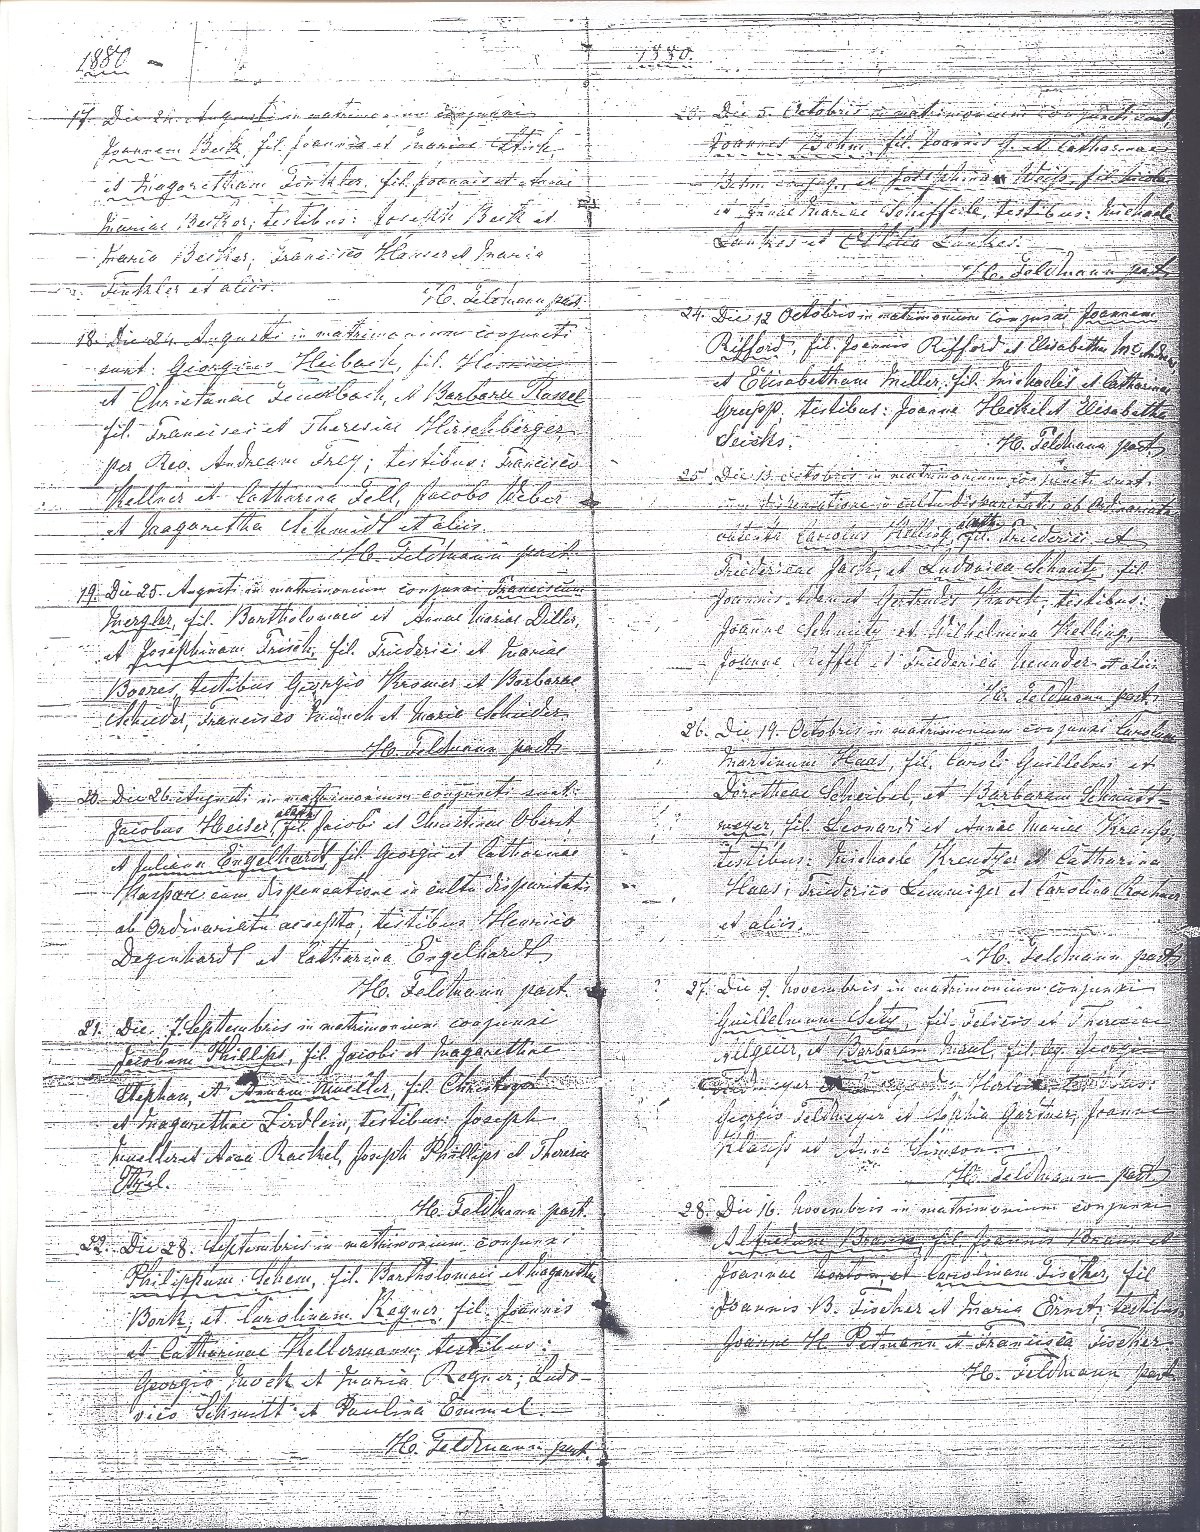 1880
17. Die 24. Augusti in matrimonium conjunxi
Joannem Beck fil. Joannis et Mariae Stich,
et Magaretham Finkler, fil. Joannis et Annae
Mariae Becker; testibus: Joseph Beck et
Maria Becker, Francisco Hauser et Maria
Finkler et aliis.
H. Feldmann past.
18. Die 24. Augusti in matrimonium conjuncti
sunt: Georgius Heibach, fil. Henrici
et Christanae, et Barbara Plassel
fil. Francisci et Theresiae Hirschberger,
per Rev. Andream Frey; testibus: Francisco
Kellner et Catharina Fell, Jacobo Weber
et Magaretha Schmidt et aliis.
H. Feldmann past.
19. Die 25. Augusti in matrimonium conjunxi Franciscum
Mergler, fil. Bartholomaei et Annae Mariae Diller,
et Josephinam Frisch, fil. Friederici et Mariae
Boeres, testibus Georgio Kromer et Barbara
Schieder, Francisco Münch et Maria Schieder
H. Feldmann past.
20. Die 26. Augusti in matrimonium conjuncti sunt:
Jacobus Heiser, fil. Jacobi et Christinae Oberst,
et Juliana Engelhardt, fil. Georgii et Catharinae
Kaspar cum dispensatione in cultu disparitatis
ab Ordinariatu accepta, testibus Henrico
Degenhardt et Catharina Engelhardt
H. Feldmann past.
21. Die 7. Septembris in matrimonium conjunxi
Jacobum Phillips, fil. Jacobi et Magarethae
Stephan, et Annam Mueller, fil. Christoph
et Magarethae Zirdlein, testibus: Joseph
Mueller et Anna Rackel, Joseph Phillips et Theresia
Thiel.
H. Feldmann past.
22. Die 28. Septembris in matrimonium conjunxi
Philippum Schem, fil. Bartholomaei et Magarethae
Bork, et Carolinam Regner, fil. Joannis
et Catharinae Kellermann, testibus:
Georgio Mock et Maria Regner, Ludo-
vico Schmitt et Paulina Emmel.
H. Feldmann past.
1880.
23. Die 5. Octobris in matrimonium conjuncti sunt,
Joannes Bohm, fil. Joannis G. et Catharinae
Bohm conjug., et Josephina Weiss, fil.
et Annae Mariae Schiffeile, testibus: Michaele
Lankes et Ottilia Lankes.
H. Feldmann past.
24. Die 12 Octobris in matrimonium conjunxi Joannem
Rifford, fil. Joannis Rifford et Elisabetha McAndrew,
et Elisabetham Miller, fil. Michaelis et Catharinae
Grupp, testibus: Joanne Heckel et Elisabetha
Seicks.
H. Feldmann past.
25. Die 13. Octobris in matrimonium conjuncti sunt.
cum dispensatione in cultu disparitatis ab Ordinariatu
obtenta Carolus Kelling, fil. Friederici et
Friedericae Jack, et Ludovica Schmitz, fil.
Joannis Adam et Gertrudis Knoch, testibus:
Joanne Schmitz et Wilhelmina Kelling,
Joanne Riffel et Friederica Meunder et aliis
H. Feldmann past.
26. Die 19. Octobris in matrimonium conjunxi Carolum
Martinum Haas, fil. Caroli Guillelmi et
Dorotheae Scheibel, et Barbaram Schmitt-
meyer, fil. Leonardi et Annae Mariae Krauss,
testibus: Michaele Kreutzer et Catharina
Haas, Friederico Lemmiger et Carolina
et aliis.
H. Feldmann past.
27. Die 9. Novembris in matrimonium conjunxi
Guillelmum Setz, fil. Felicis et Theresiae
Allgeier, et Barbaram Maul, fil. leg. Georgii
Georgio Feldmeyer et Sophia Gartner, Joanne
Klauss et Anna Simeon.
H. Feldmann past.
28. Die 16. Novembris in matrimonium conjunxi
Alfredum Braun, fil Joannis Braun et
Joannae Norton, et Carolinam Fischer, fil
Joannis B. Fischer et Maria Ernst, testibus
Joanne H. Petmann et Francisca Fischer
H. Feldmann past.